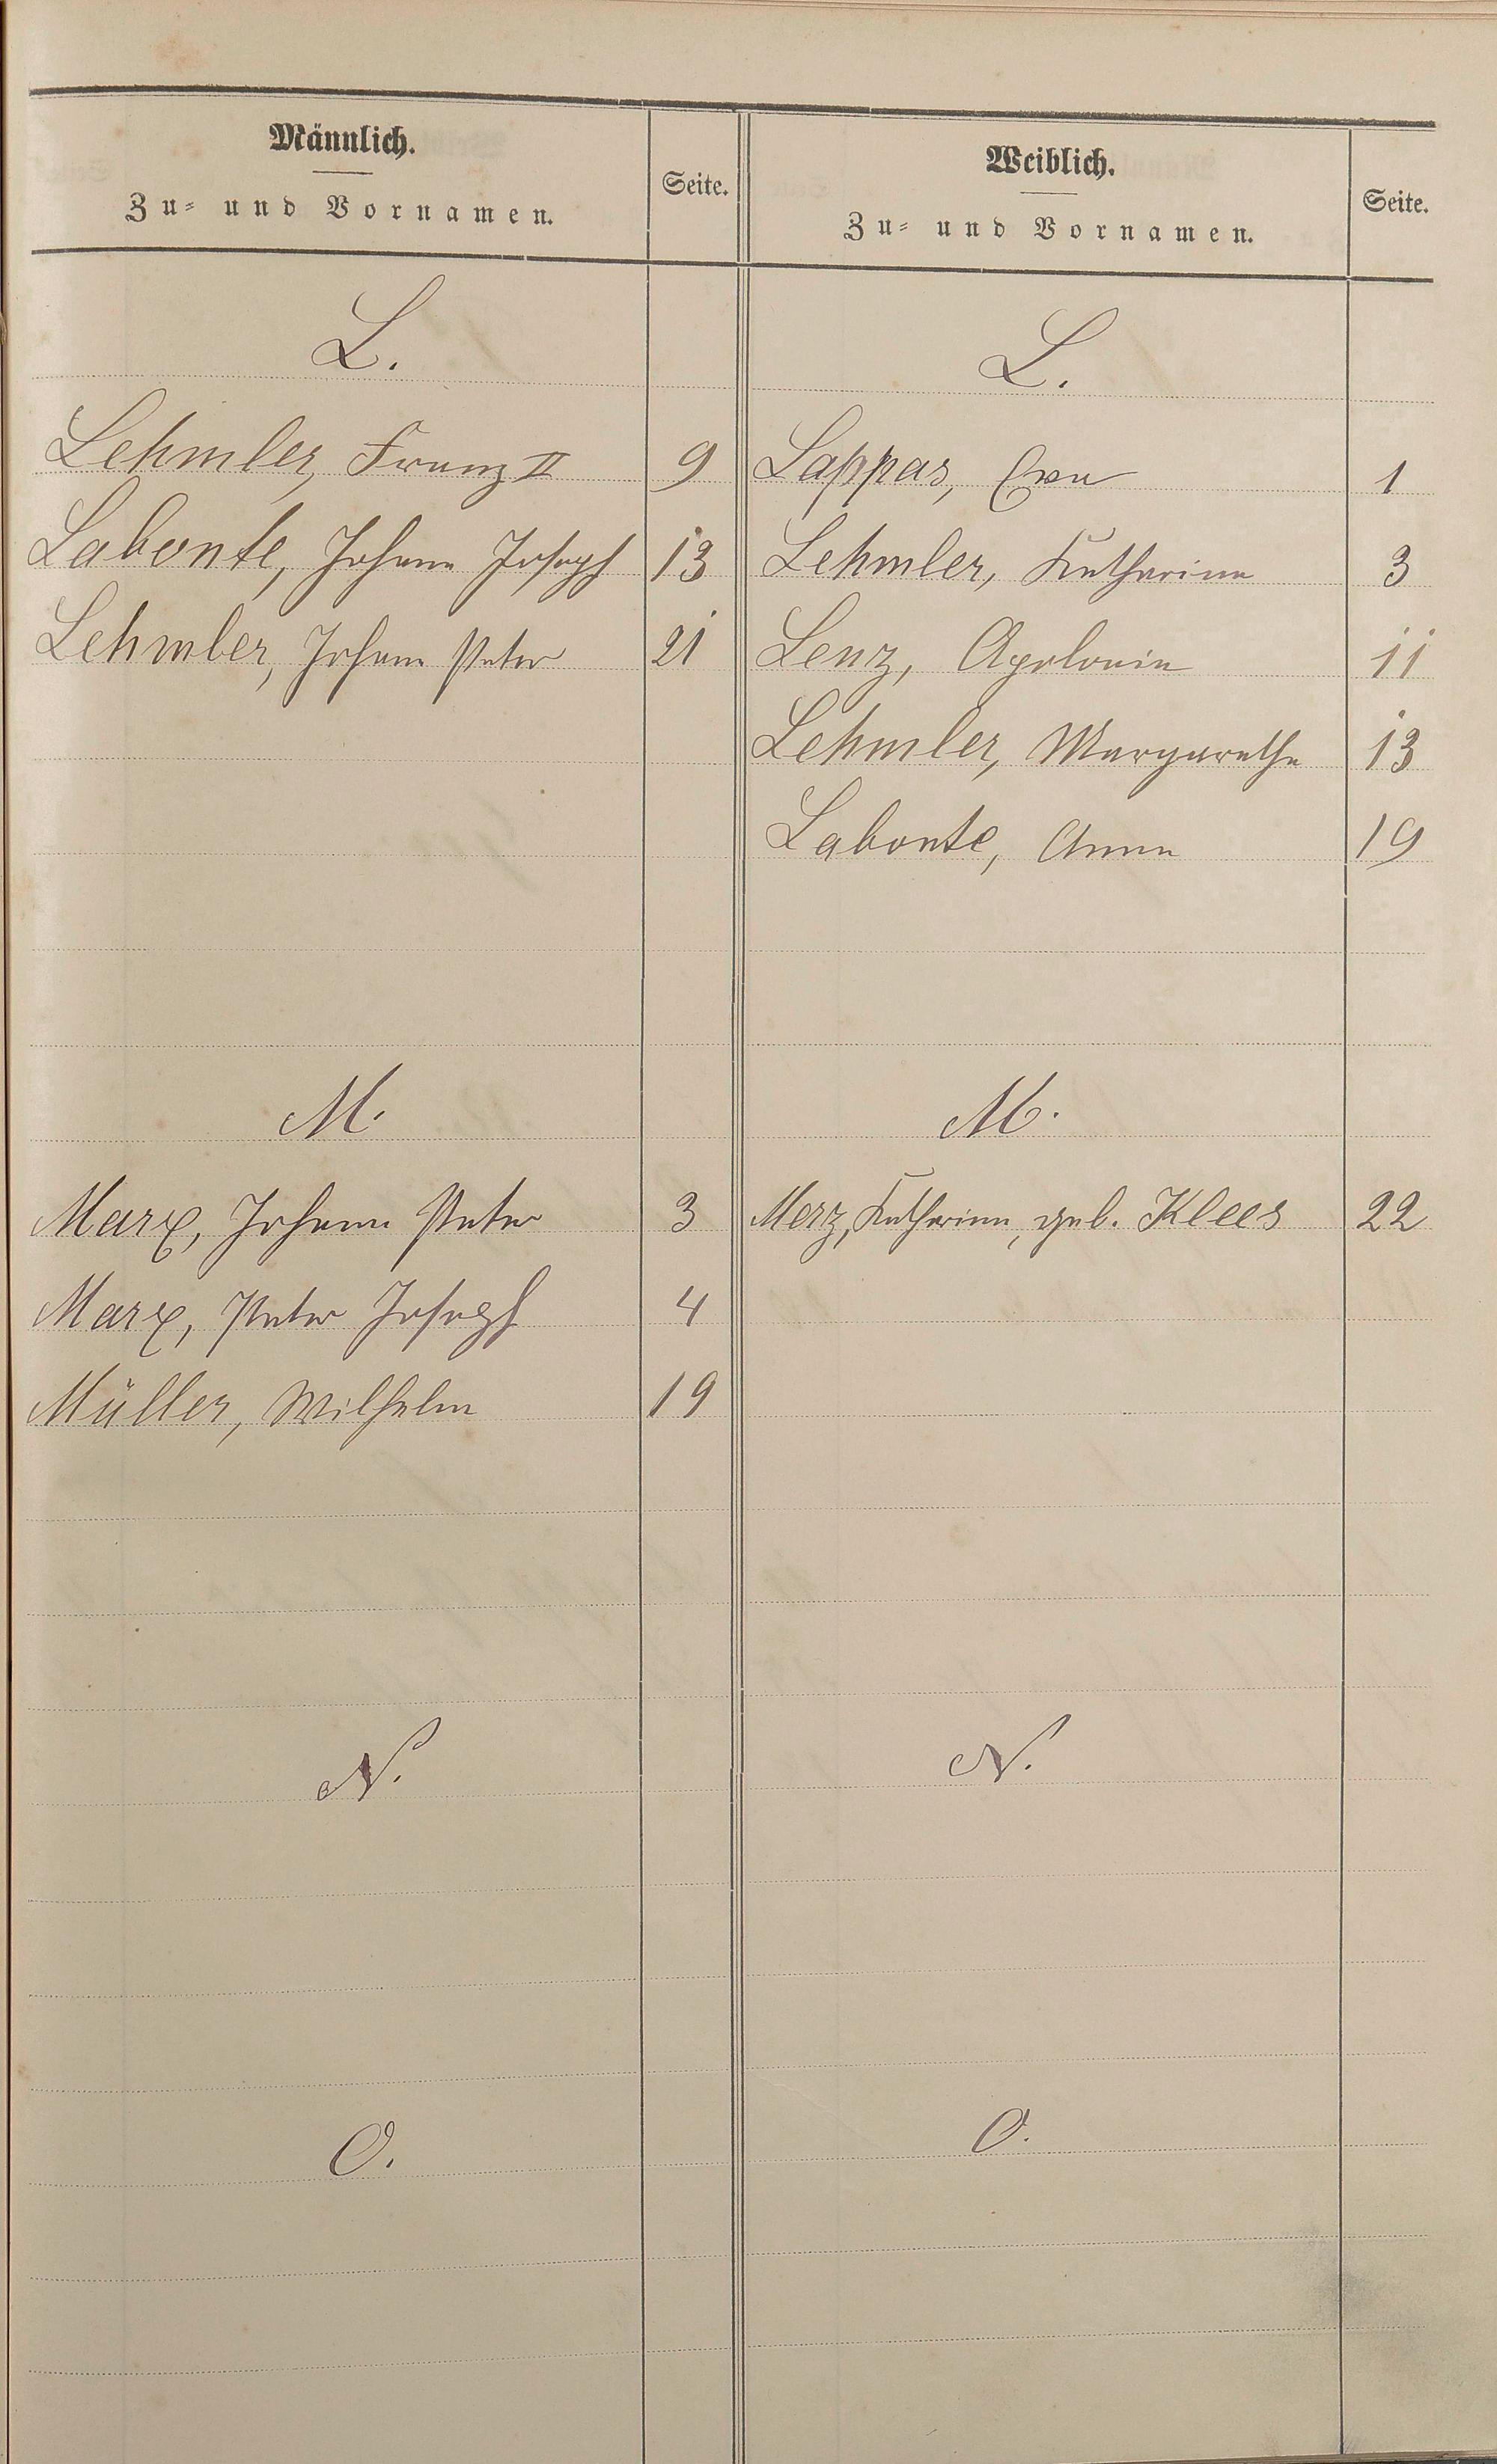 Männlich.
Zu- und Vornamen.
Seite.
Weiblich.
Zu- und Vornamen.
Seite.
L.
L.
Lehmler, Franz II 9
Lappas, Eva 1
Labonte, Johann Joseph 13
Lehmler, Katharina 3
Lehmler, Johann Peter 21
Lenz, Apolonia 11
Lehmler, Margarethe 13
Labonte, Anna 19
M.
M.
Marx, Johann Peter 3
Merz, Katharina, geb. Klees 22
Marx, Peter Joseph 4
Müller, Wilhelm 19
N.
N.
O.
O.